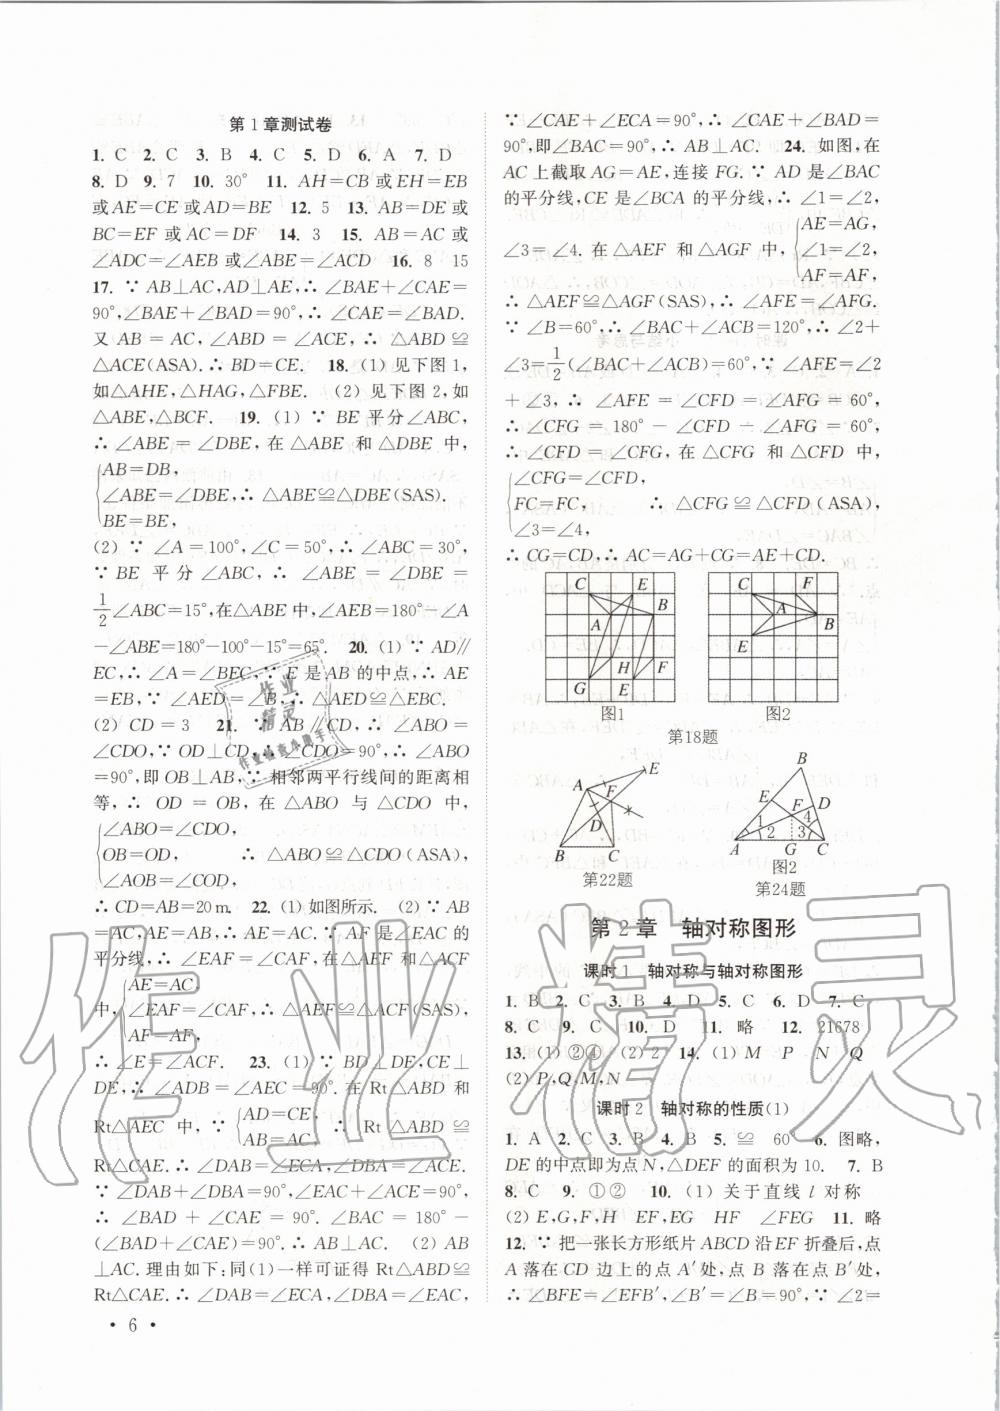 第1章测试卷
1. C 2. C 3. B 4. C 5. D 6. A 7. D
8. D 9. 7 10. 30° 11. AH=CB或EH=EB
或AE=CE或AD=BE 12. 5 13. AB=DE或
BC=EF或AC=DF 14. 3 15. AB=AC或
∠ADC=∠AEB或∠ABE=∠ACD 16. 8 15
17. ∵ AB⊥AC,AD⊥AE,∴ ∠BAE+∠CAE=
90°,∠BAE+∠BAD=90°,∴ ∠CAE=∠BAD.
又 AB = AC, ∠ABD = ∠ACE, ∴ △ABD ≌
△ACE(ASA).∴ BD=CE. 18. (1) 见下图1,
如△AHE,△HAG,△FBE. (2) 见下图2,如
△ABE,△BCF. 19. (1) ∵ BE平分∠ABC,
∴ ∠ABE = ∠DBE, 在 △ABE 和 △DBE 中,
AB=DB,
∠ABE=∠DBE,∴ △ABE≌△DBE(SAS).
BE=BE,
(2) ∵ ∠A=100°,∠C=50°,∴ ∠ABC=30°,
∵ BE 平分 ∠ABC, ∴ ∠ABE = ∠DBE =
1/2∠ABC=15°,在△ABE中,∠AEB=180°-∠A
-∠ABE=180°-100°-15°=65°. 20. (1) ∵ AD∥
EC,∴ ∠A=∠BEC,∵ E是AB的中点,∴ AE
=EB,∵ ∠AED=∠B,∴ △AED≌△EBC.
(2) CD=3 21. ∵ AB∥CD,∴ ∠ABO=
∠CDO,∵ OD⊥CD,∴ ∠CDO=90°,∴ ∠ABO
=90°,即OB⊥AB,∵ 相邻两平行线间的距离相
等, ∴ OD = OB, 在 △ABO 与 △CDO 中,
∠ABO=∠CDO,
OB=OD, ∴ △ABO≌△CDO(ASA),
∠AOB=∠COD,
∴ CD=AB=20 m. 22. (1) 如图所示. (2) ∵ AB
=AC,AE=AB,∴ AE=AC.∵ AF是∠EAC的
平分线,∴ ∠EAF=∠CAF. 在△AEF和△ACF
AE=AC,
中,∠EAF=∠CAF,∴ △AEF≌△ACF(SAS).
AF=AF,
∴ ∠E=∠ACF. 23. (1) ∵ BD⊥DE,CE⊥
DE,∴ ∠ADB=∠AEC=90°.在Rt△ABD和
Rt△AEC中,∵ AD=CE,
AB=AC, ∴ Rt△ABD≌
Rt△CAE.∴ ∠DAB=∠ECA,∠DBA=∠EAC.
∵ ∠DAB+∠DBA=90°,∠EAC+∠ACE=90°,
∴ ∠BAD + ∠CAE = 90°. ∠BAC = 180° -
(∠BAD+∠CAE)=90°.∴ AB⊥AC. (2) AB⊥
AC.理由如下:同(1)一样可证得Rt△ABD≌
Rt△CAE.∴ ∠DAB=∠ECA,∠DBA=∠EAC,
• 6 •
∵ ∠CAE+∠ECA=90°,∴ ∠CAE+∠BAD=
90°,即∠BAC=90°,∴ AB⊥AC. 24. 如图,在
AC上截取AG=AE,连接FG.∵ AD是∠BAC
的平分线,CE是∠BCA的平分线,∴ ∠1=∠2,
AE=AG,
∠3=∠4.在△AEF和△AGF中,∠1=∠2,
AF=AF,
∴ △AEF≌△AGF(SAS),∴ ∠AFE=∠AFG.
∵ ∠B=60°,∴ ∠BAC+∠ACB=120°,∴ ∠2+
∠3=1/2(∠BAC+∠ACB)=60°,∵ ∠AFE=∠2
+∠3, ∴ ∠AFE = ∠CFD = ∠AFG = 60°,
∴ ∠CFG = 180° - ∠CFD - ∠AFG = 60°,
∴ ∠CFD = ∠CFG, 在 △CFG 和 △CFD 中,
∠CFG=∠CFD,
FC=FC, ∴ △CFG≌△CFD(ASA),
∠3=∠4,
∴ CG=CD,∴ AC=AG+CG=AE+CD.
C E B A H F G E
图1
C F A B E
图2
第18题
E A F D B C
第22题
B E F D 1 2 4 3 A G C
图2
第24题
第2章 轴对称图形
课时1 轴对称与轴对称图形
1. B 2. C 3. B 4. D 5. C 6. D 7. C
8. C 9. C 10. D 11. 略 12. 21678
13. (1) ②④ (2) 2 14. (1) M P N Q
(2) P,Q,M,N
课时2 轴对称的性质(1)
1. A 2. C 3. B 4. B 5. ≌ 60° 6. 图略,
DE的中点即为点N,△DEF的面积为10. 7. B
8. C 9. ①② 10. (1) 关于直线 l 对称
(2) E,G,F,H EF,EG HF ∠FEG 11. 略
12. ∵ 把一张长方形纸片ABCD沿EF折叠后,点
A落在CD边上的点A′处,点B落在点B′处,
∴ ∠BFE=∠EFB′,∠B′=∠B=90°,∵ ∠2=
作业精灵
作业精灵